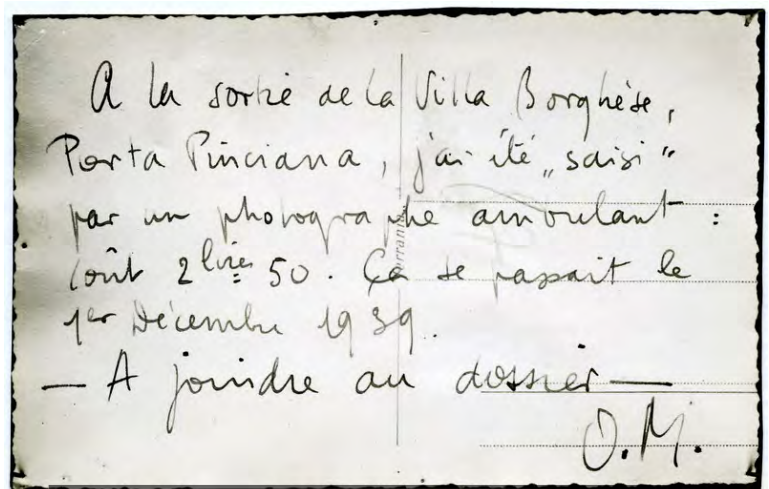 A la sortie de la Villa Borghèse,
Porta Pinciana, j'ai été „saisi“
par un photographe ambulant :
coût 2 lires 50. Ça se passait le
1er Décembre 1939.
— A joindre au dossier —
O.M.